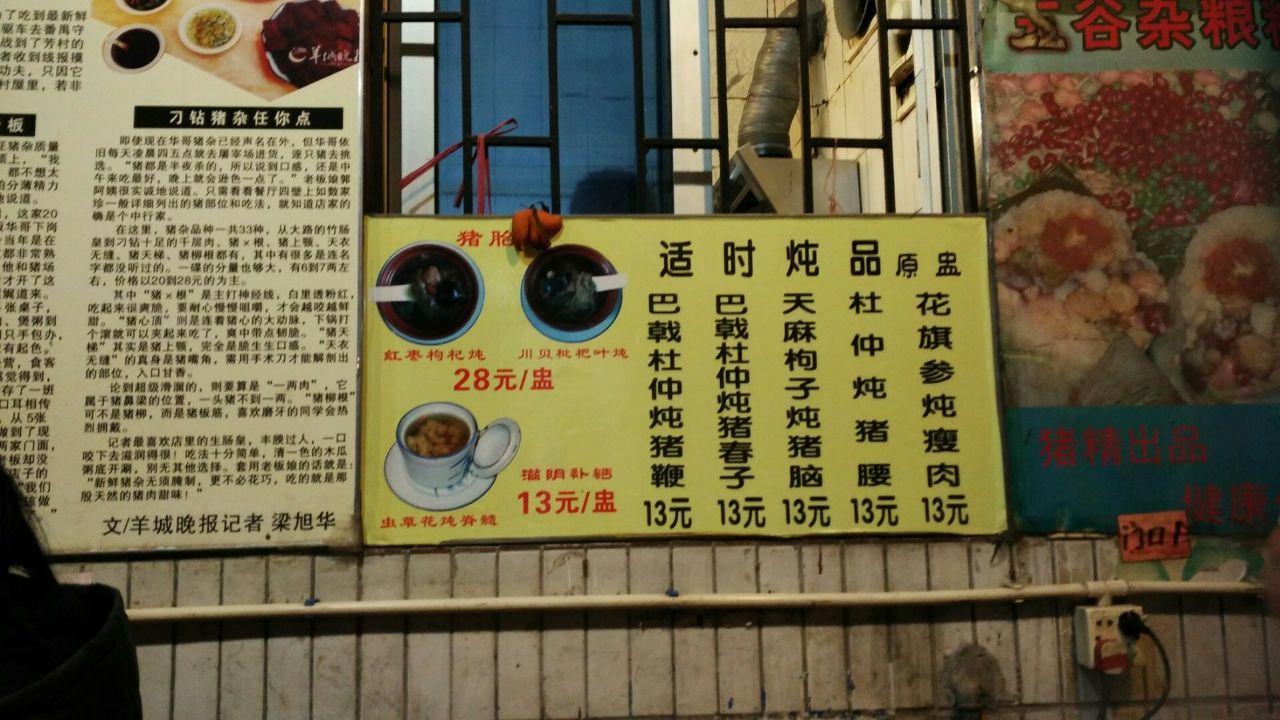 了吃到最新鲜
驱车去番禺守
战到了芳村的
者收到线报摸
功夫，只因它
村屋里，若非
羊城晚
板
刁钻猪杂任你点
即使现在华哥猪杂已经声名在外，但华哥依
旧每天凌晨四五点就去屠宰场进货，逐只猪去挑
选。“猪都是半夜杀的，所以说到口感，还是中
午来吃最好，晚上就会逊色一点了。”老板娘郭
阿姨很实诚地说道。只需看看餐厅四壁上如数家
珍一般详细列出的猪部位和吃法，就知道店家的
确是个中行家。
在这里，猪杂品种一共33种，从大路的竹肠
皇到刁钻十足的千层肉、猪×根、猪上颚、天衣
无缝、猪天梯、猪柳根都有，其中有很多是连名
字都没听过的。一碟的分量也够大，有6到7两左
右，价格以20到28元的为主。
其中“猪×根”是主打神经线，白里透粉红，
吃起来很爽脆，要耐心慢慢咀嚼，才会越咬越鲜
甜。“猪心顶”则是连着猪心的大动脉，下锅打
个滚就可以夹起来吃了，爽中带点韧脆。“猪天
梯”其实是猪上颚，完全是脆生生口感。“天衣
无缝”的真身是猪嘴角，需用手术刀才能解剖出
的部位，入口甘香。
论到超级滑溜的，则要算是“一两肉”，它
属于猪鼻梁的位置，一头猪不到一两。“猪柳根”
可不是猪柳，而是猪板筋，喜欢磨牙的同学会热
烈拥戴。
记者最喜欢店里的生肠皇，丰腴过人，一口
咬下去滋润得很！吃法十分简单，清一色的木瓜
粥底开涮，别无其他选择。套用老板娘的话就是：
“新鲜猪杂无须腌制，更不必花巧，吃的就是那
股天然的猪肉甜味！”
文/羊城晚报记者 梁旭华
猪杂质量
顶上，“我
，都不想太
的分薄精力
地说道。
，这家20
华哥下岗
当年是在
都非常熟
他和猪场
才开了这
娓道来。
张桌子，
、煲粥到
只手包办，
有起色。
营，食客
感觉得到，
存了一班
口耳相传
，从5张
做到了现
两家门面，
老板却没
店子的
我们
该做
猪胎
红枣枸杞炖
川贝枇杷叶炖
28元/盅
滋阴补钙
13元/盅
虫草花炖脊髓
适时炖品 原盅
巴戟杜仲炖猪鞭 13元
巴戟杜仲炖猪春子 13元
天麻枸子炖猪脑 13元
杜仲炖猪腰 13元
花旗参炖瘦肉 13元
五谷杂粮
猪精出品
健康
门口